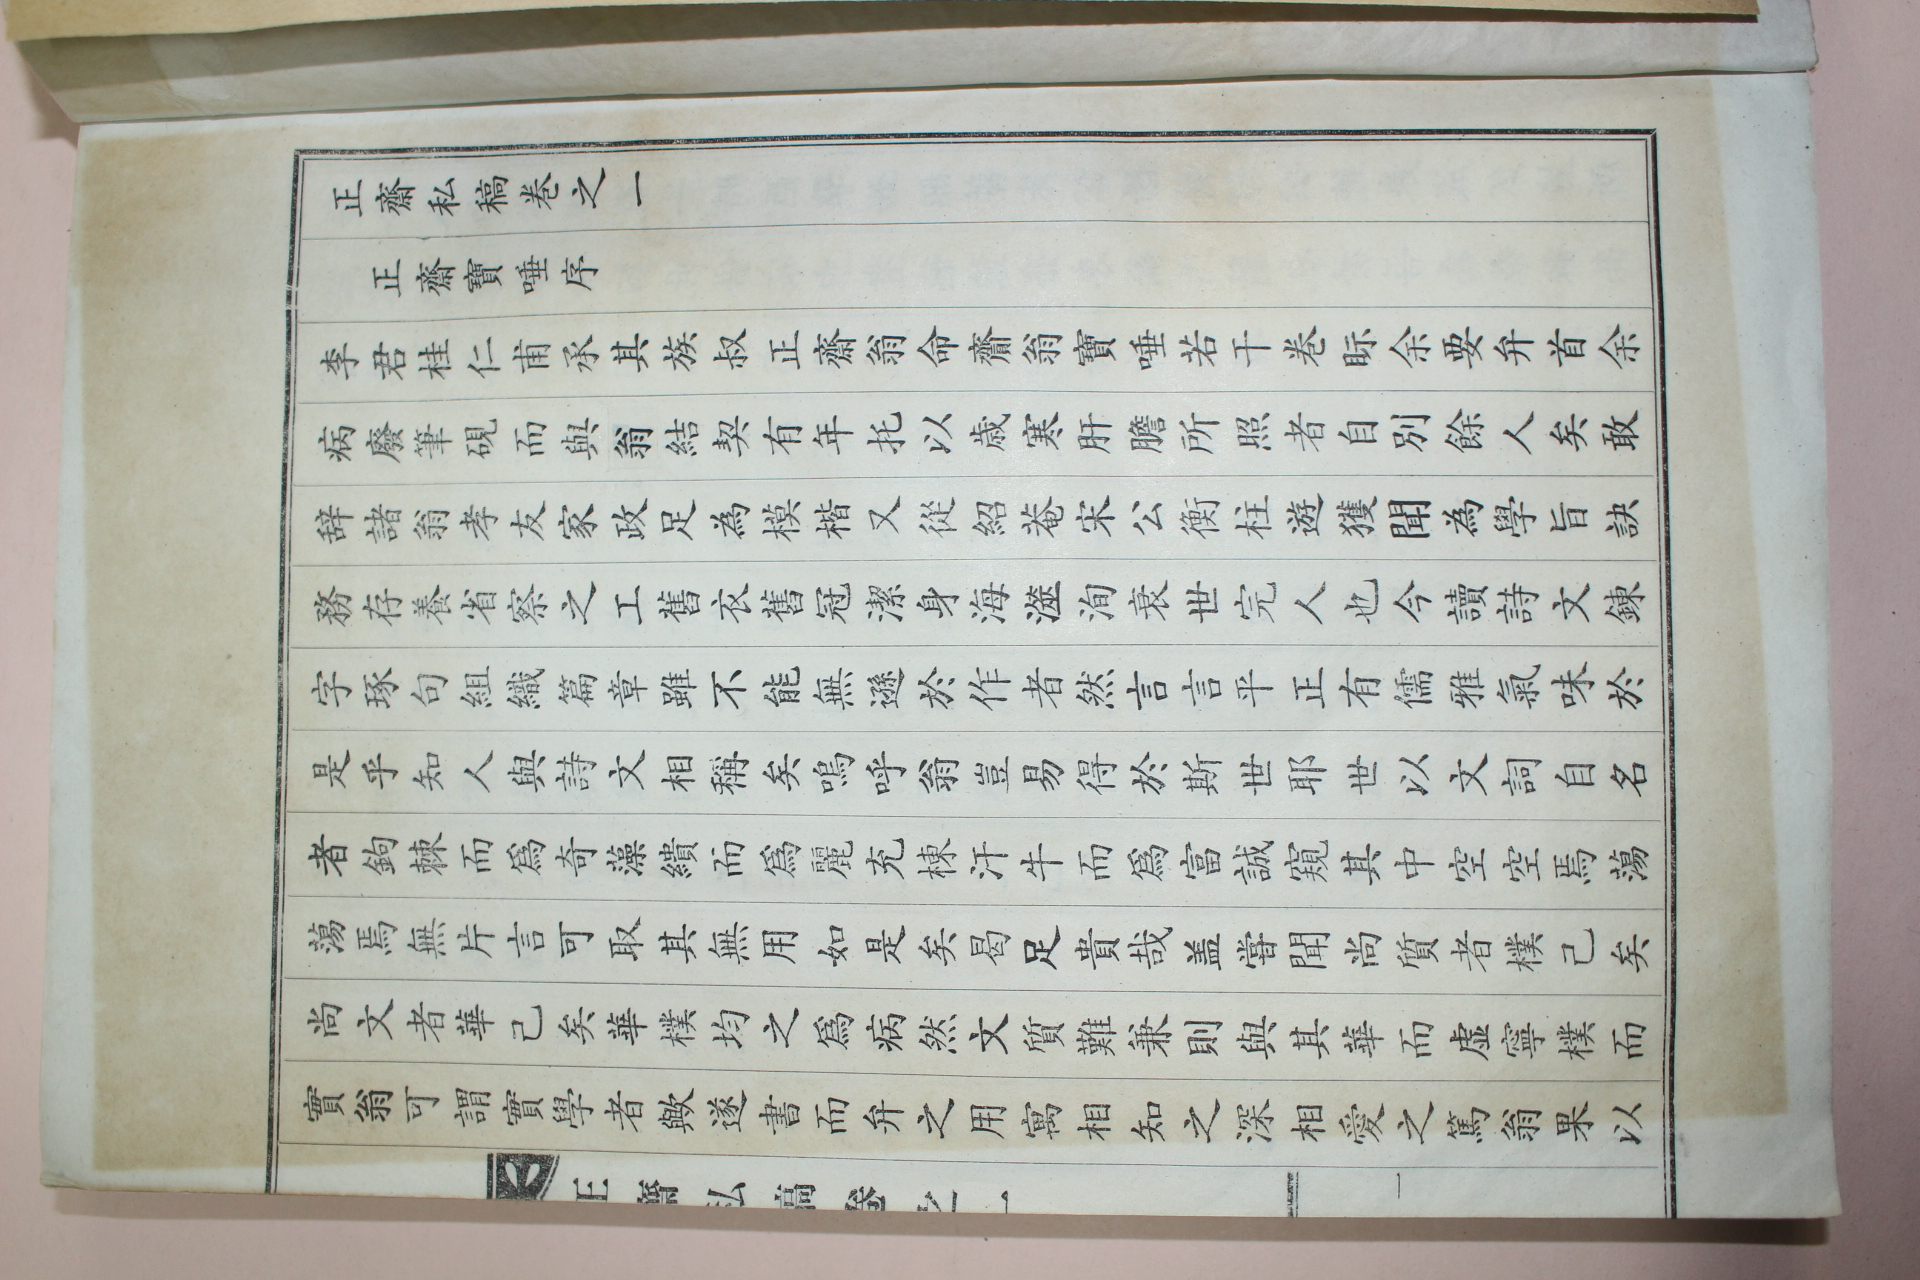 正齋私稿卷之一
正齋寶唾序
李君桂仁甫承其族叔正齋翁命齎翁寶唾若干卷眎余要弁首余
病廢筆硯而與翁結契有年托以歲寒肝膽所照者自別餘人矣敢
辞諸翁孝友家政足為模楷又從紹菴宋公衡柱遊獲聞為學旨訣
務存養省察之工舊衣舊冠潔身海澨洵衰世完人也今讀詩文鍊
字琢句組織篇章雖不能無遜於作者然言言平正有儒雅氣味於
是乎知人與詩文相稱矣嗚呼翁豈易得於斯世耶世以文詞自名
者鉤棘而爲奇藻繢而爲麗充棟汗牛而爲富誠窺其中空空焉蕩
蕩焉無片言可取其無用如是矣曷足貴哉盖嘗聞尚質者樸已矣
尚文者華已矣華樸均之爲病然文質難兼則與其華而虛寧樸而
實翁可謂實學者歟遂書而弁之用寓相知之深相愛之篤翁果以
正齋私稿卷之一
一